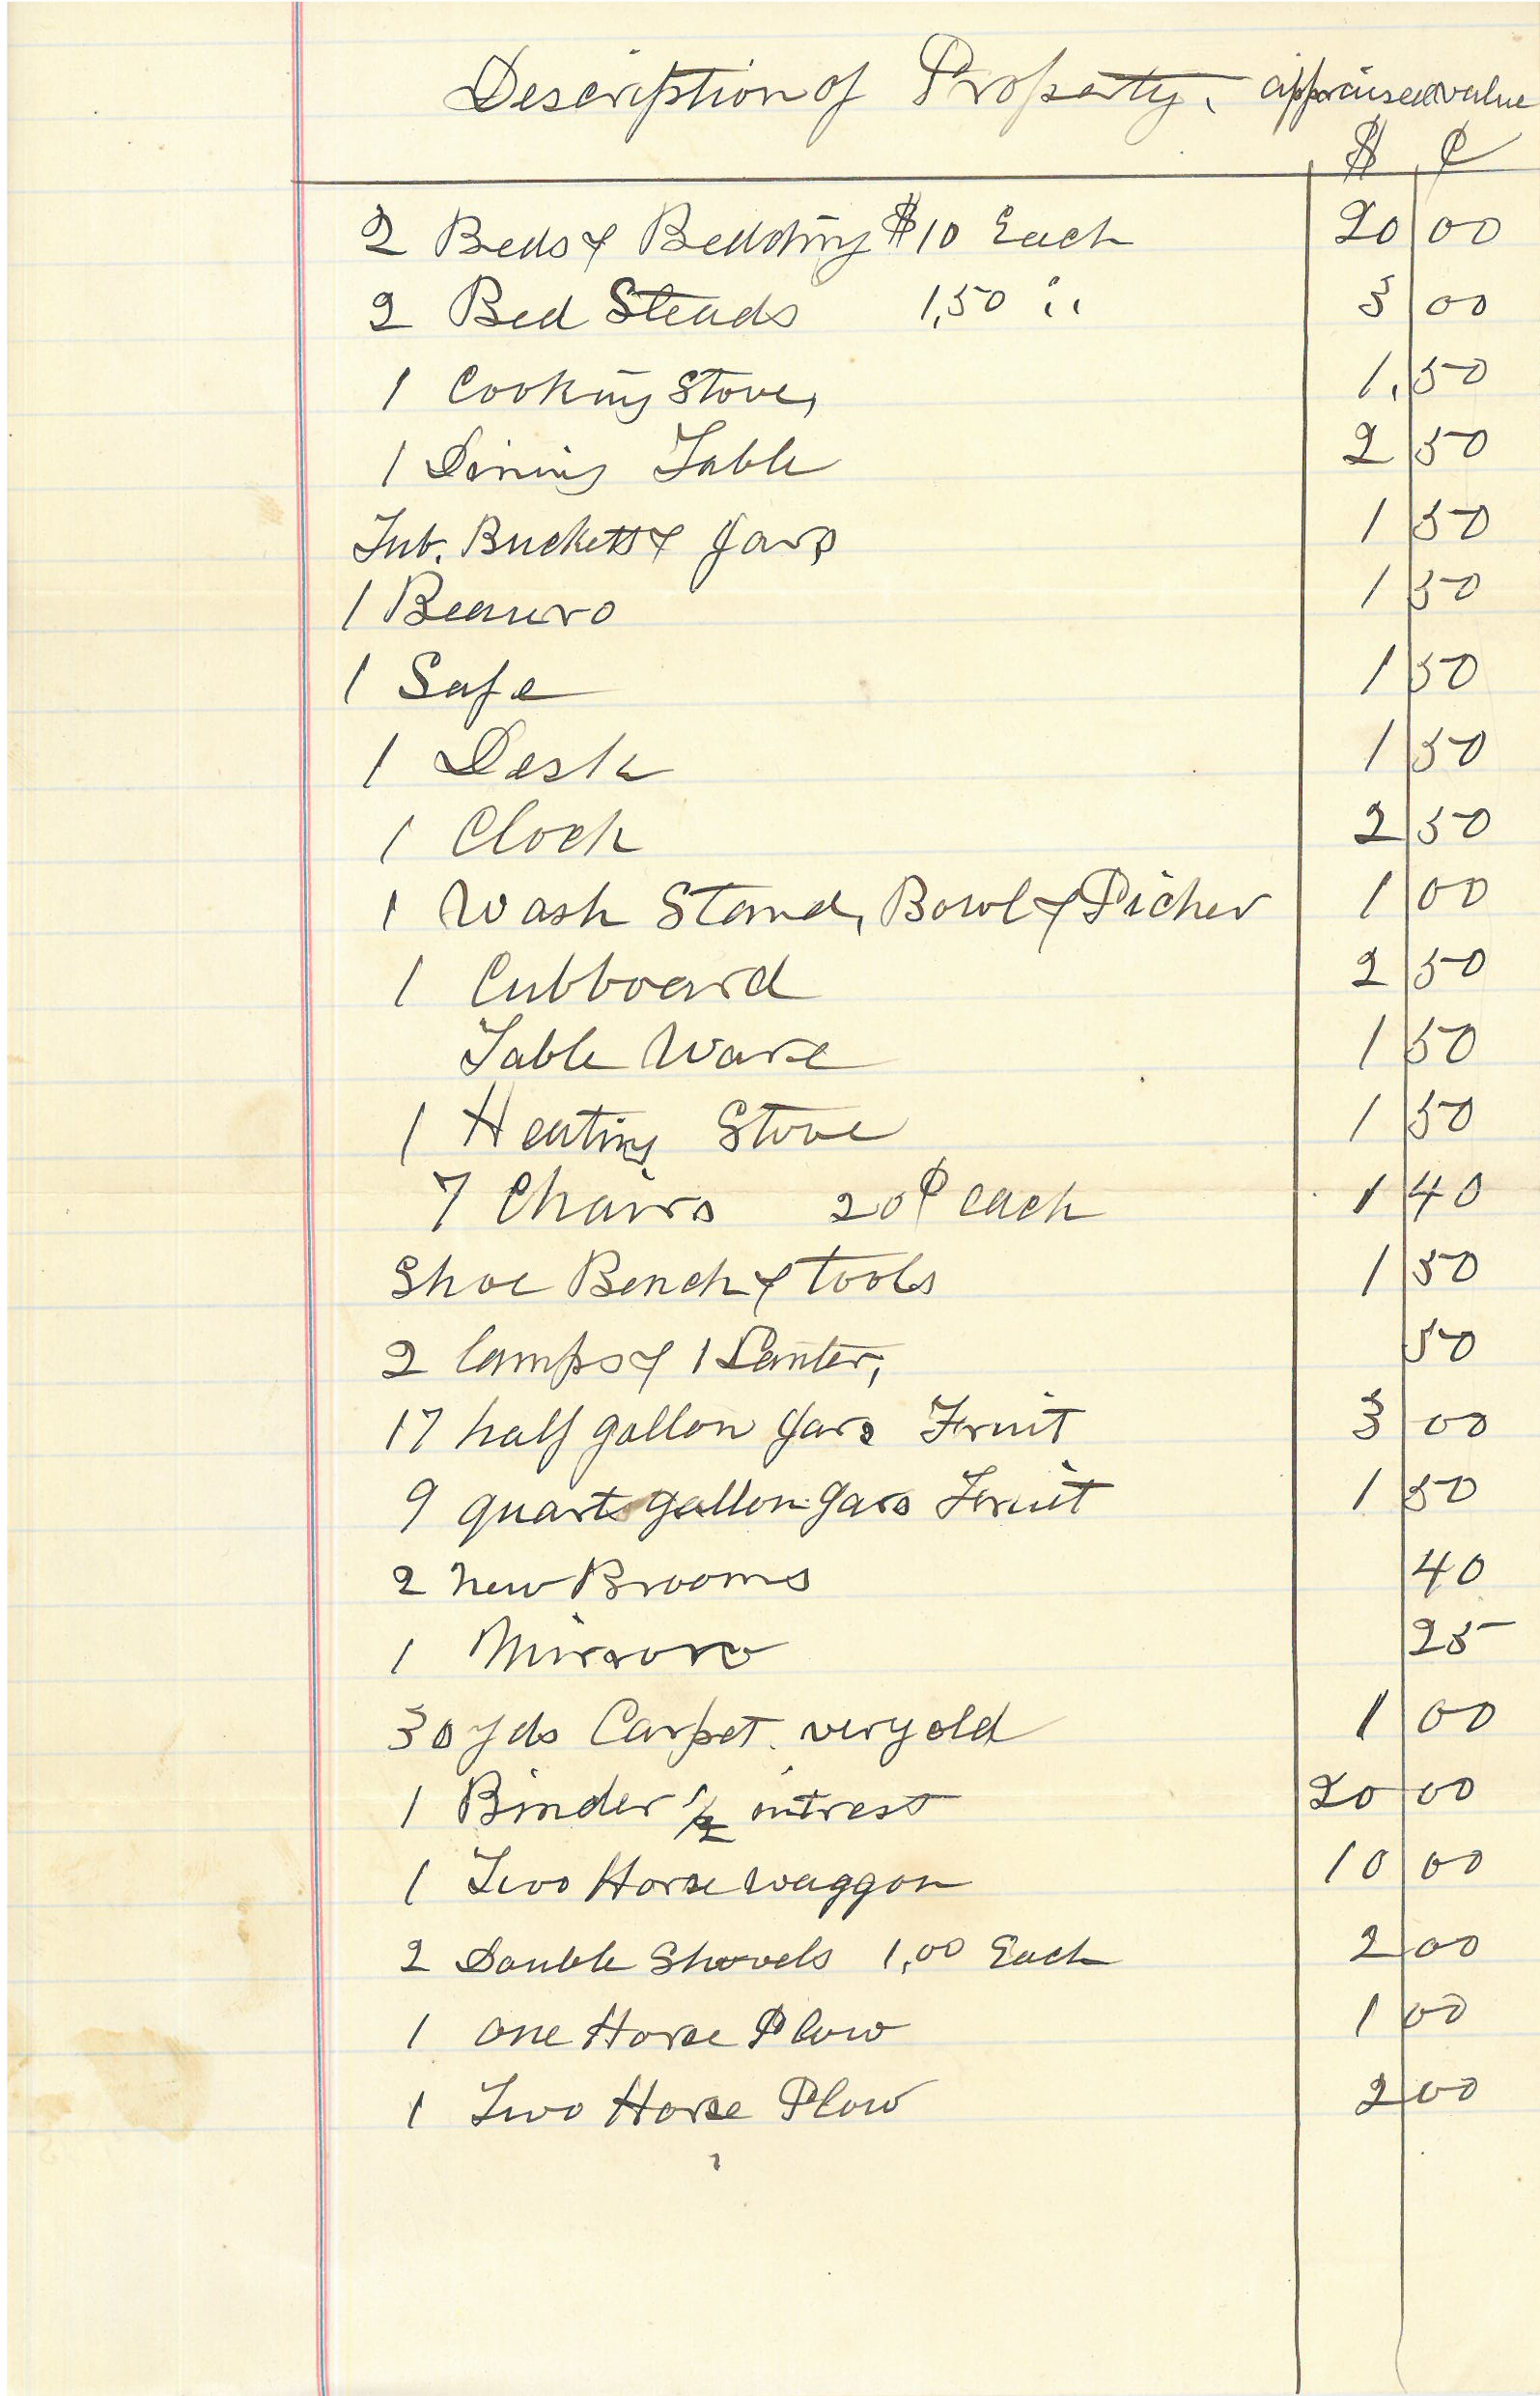 Description of Property, appraised value
$ ¢
2 Beds & Bedding $10 Each 20 00
2 Bed Steads 1,50 " 3 00
1 Cooking Stove, 1,50
1 Dining Table 2 50
Tub. Bucketts & Jars 1 50
1 Beauro 1 50
1 Safe 1 50
1 Desk 1 50
1 Clock 2 50
1 Wash Stand, Bowl & Picher 1 00
1 Cubboard 2 50
Table Ware 1 50
1 Heating Stove 1 50
7 Chairs 20¢ each 1 40
Shoe Bench & tools 1 50
2 lamps & 1 Lanter, 50
17 half gallon Jars Fruit 3 00
9 quarts gallon Jars Fruit 1 50
2 new Brooms 40
1 Mirroro 25
30 yds Carpet. very old 1 00
1 Binder 1/2 intrest 20 00
1 Two Horse waggon 10 00
2 Double Shovels 1,00 Each 2 00
1 one Horse Plow 1 00
1 Two Horse Plow 2 00